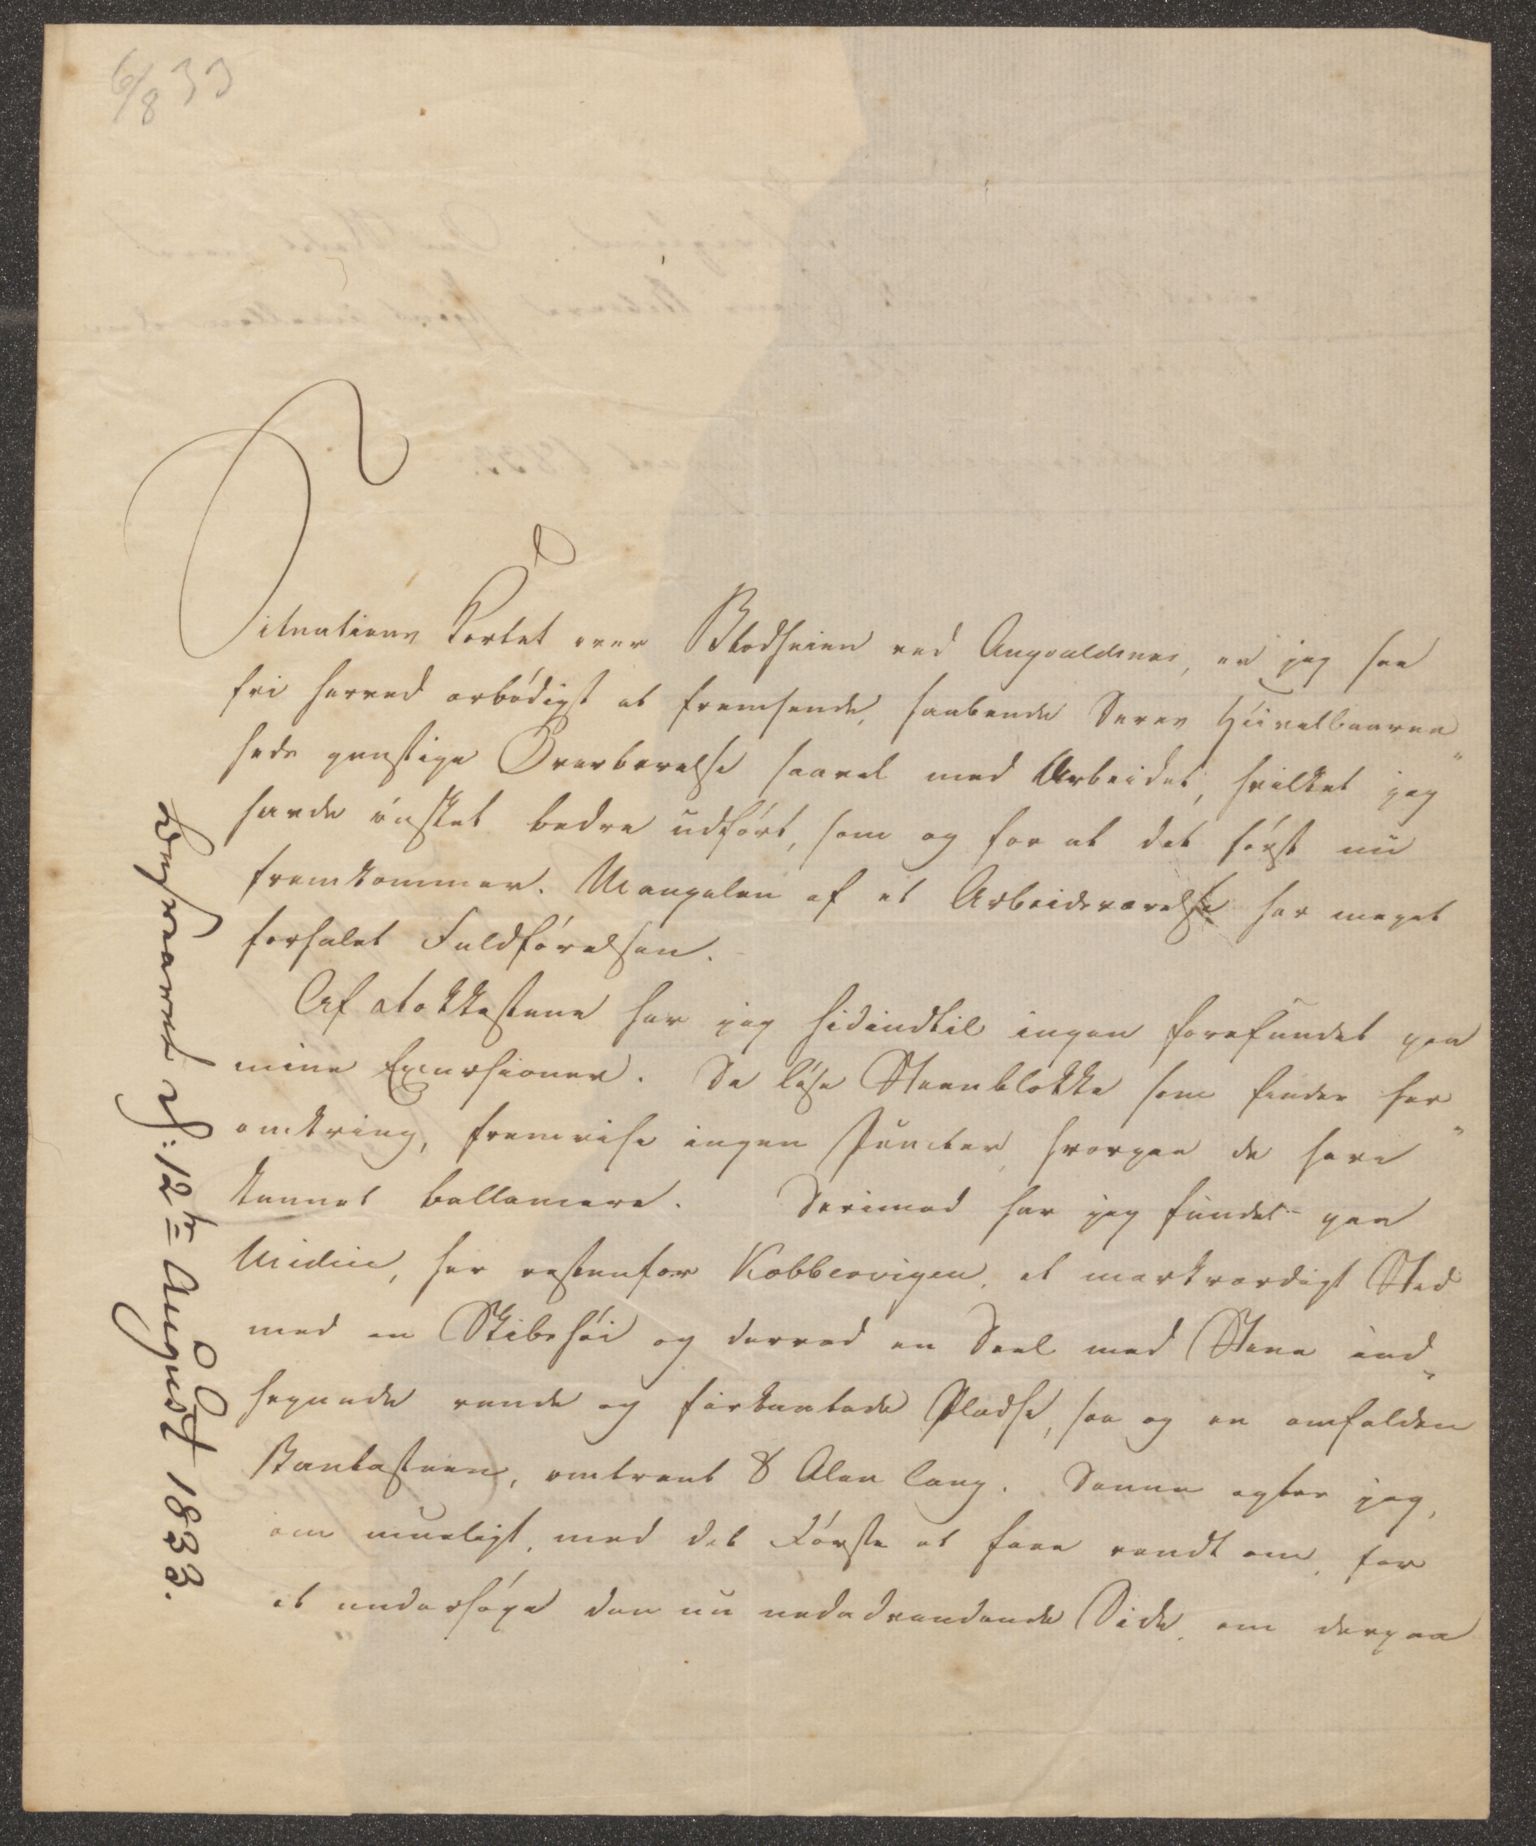 6/8 33
Situations Kortet over Blodheien ved Augvaldsnes, er jeg saa
fri herved ærbødigst at fremsende, haabende Deres Høivelbaaren"
heds gunstige Overbærelse saavel med Arbeidet, hvilket jeg
havde ønsket bedre udført, som og for at det først nu
fremkommer. Mangelen af et Arbeidsværelse har meget
forhalet Fuldførelsen.
Af Rokkestene har jeg hidindtil ingen forefundet paa
mine Excursioner. De løse Steenblokke som findes her"
omkring, fremvise ingen Puncter, hvorpaa de have
kunnet ballancere. Derimod har jeg fundet paa
her vestenfor Kobbervigen, et mærkværdigt Sted
med en Skibshøi og derved en Deel med Stene ind"
hegnede runde og firkantede Pladse, saa og en omfalden
Bautasteen, omtrent 8 Alen lang. Denne agter jeg,
om mueligt, med det Første at faae vendt om, for
at undersøge den nu nedadvendende Side, om derpaa
Besvaret d: 12te August 1833.